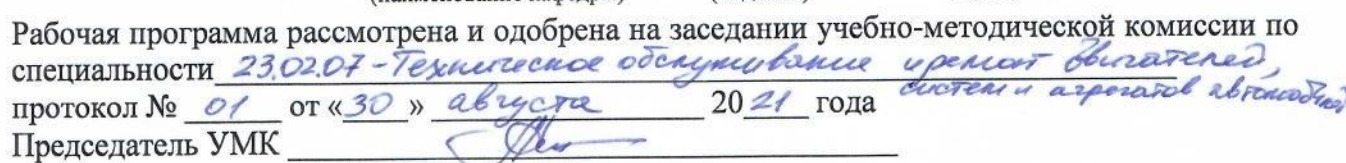 Рабочая программа рассмотрена и одобрена на заседании учебно-методической комиссии по
специальности 23.02.07 - Техническое обслуживание и ремонт двигателей,
систем и агрегатов автомобилей
протокол № 01 от «30» августа 2021 года
Председатель УМК